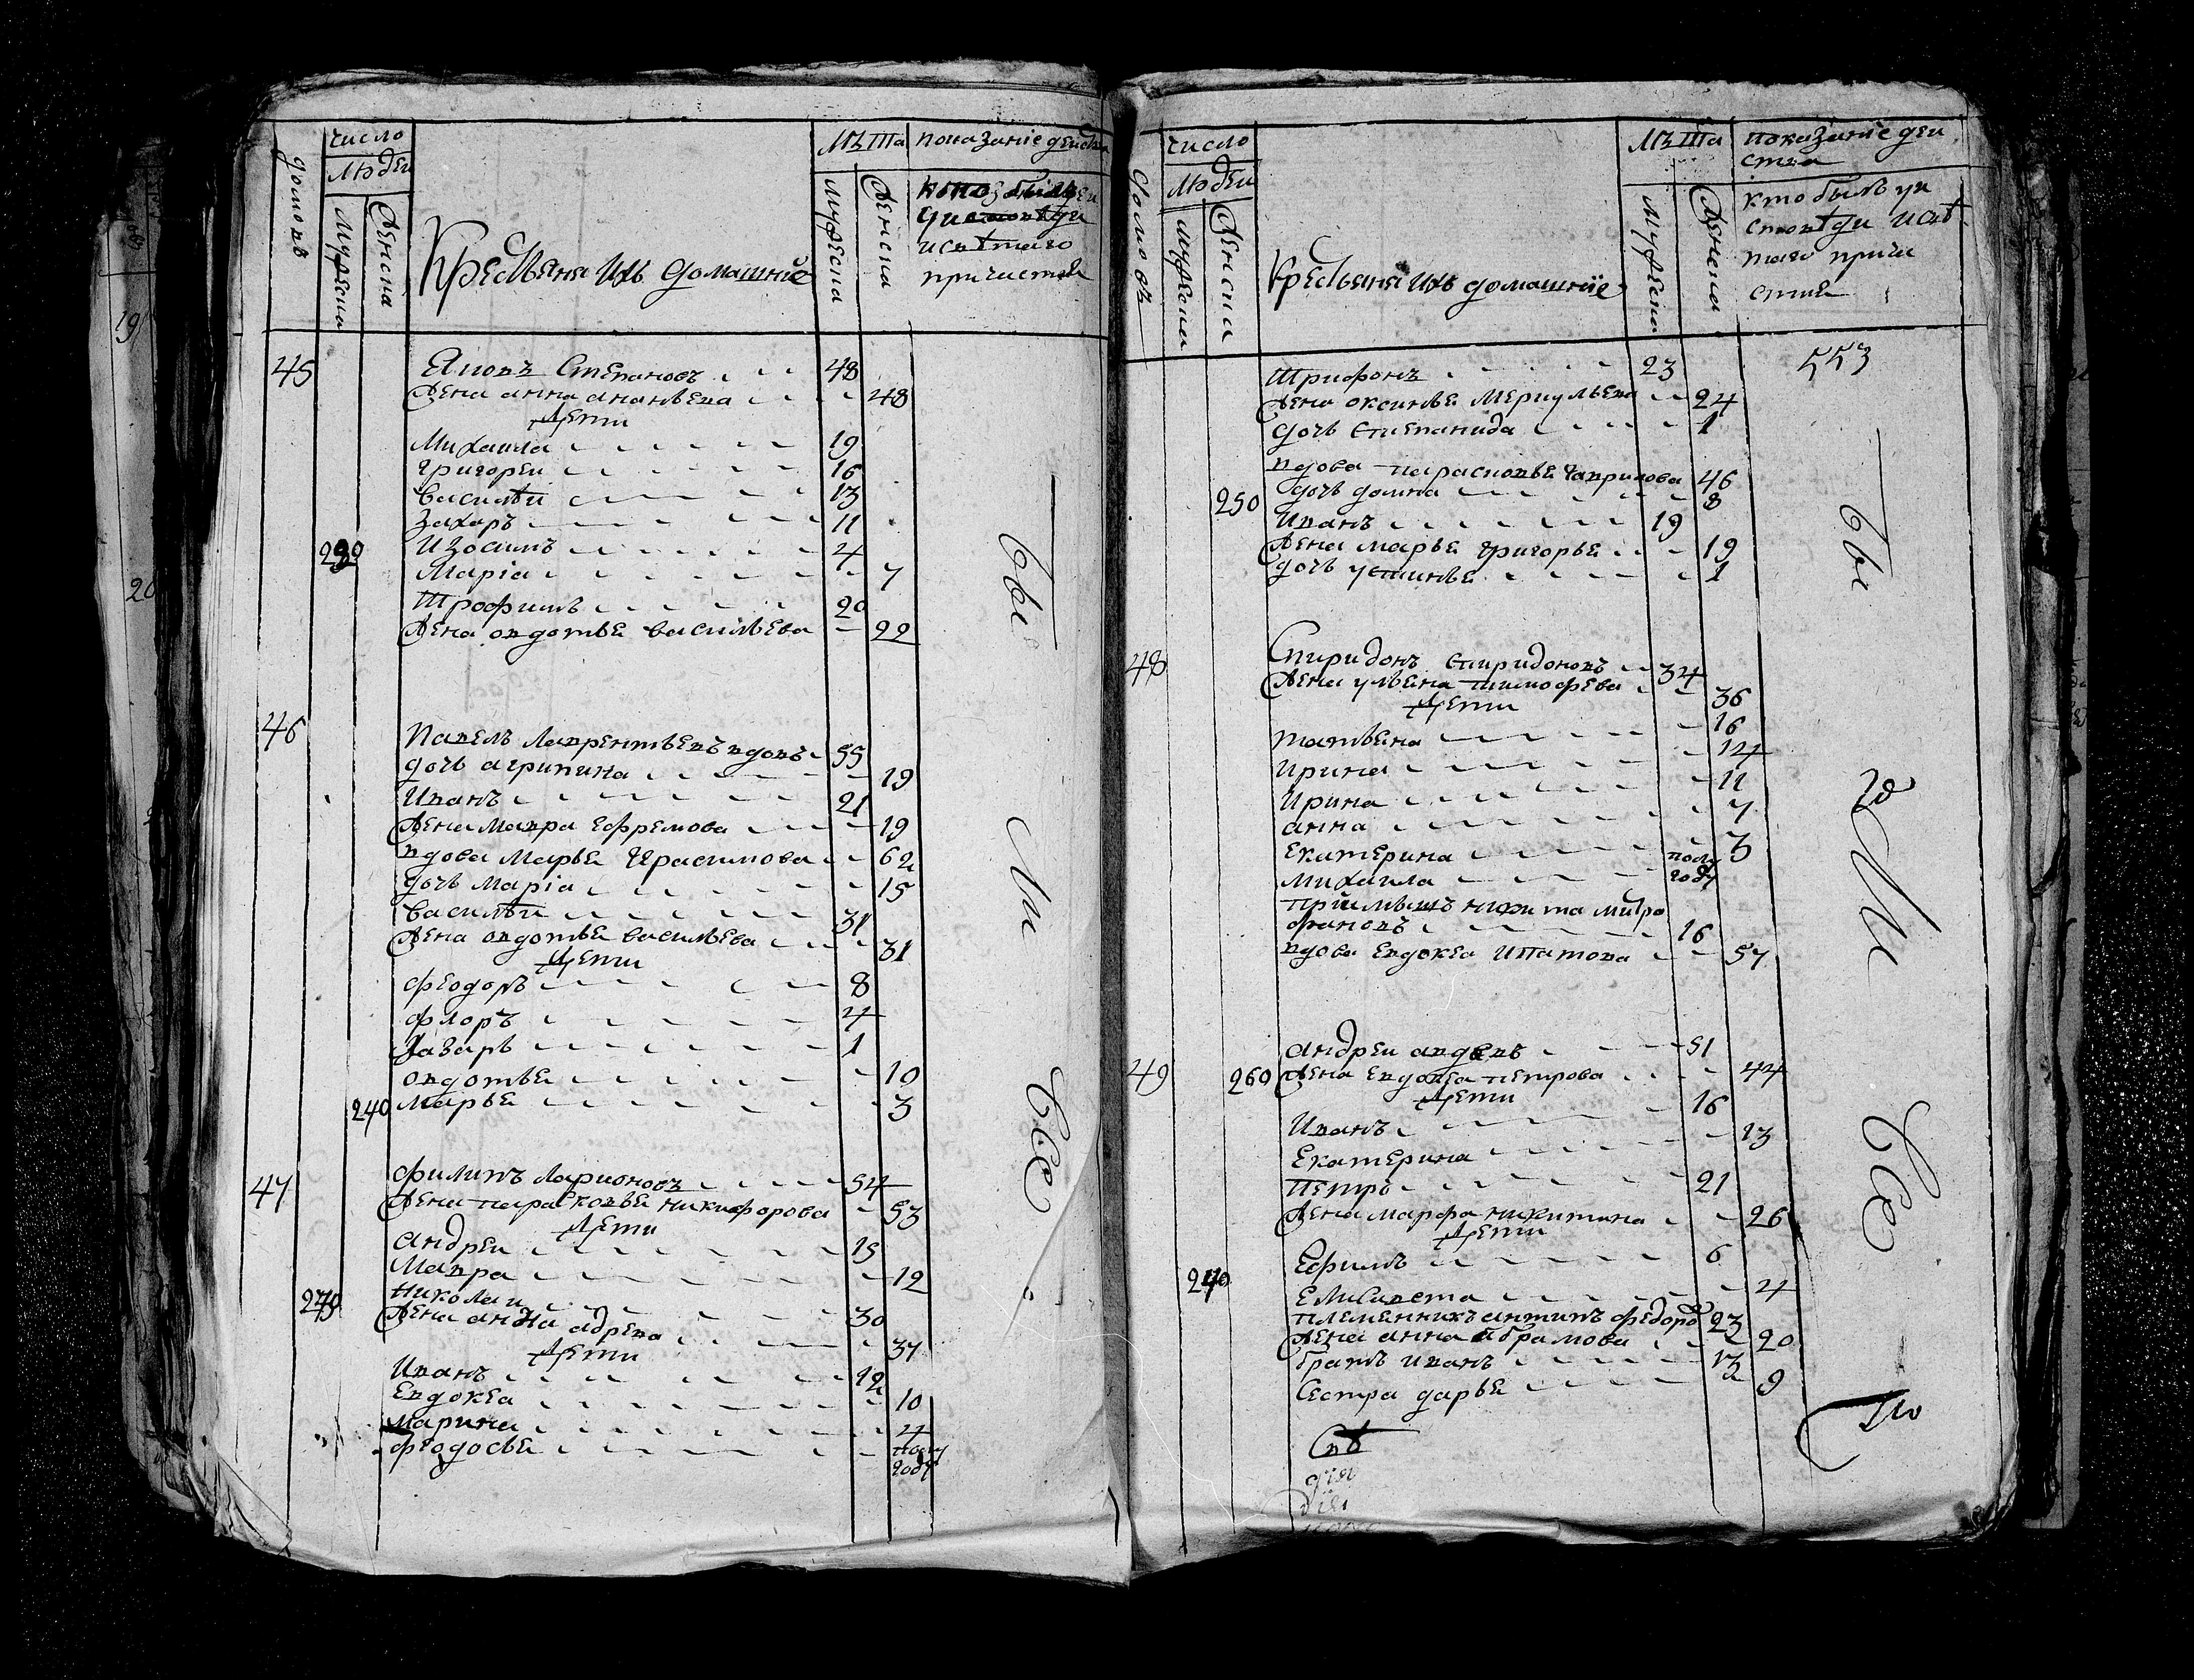 число
людеи
домовъ
мужеска
женска
Крестьяня ихъ домашние
лѣта
мужеска
женска
показание деиства
исвѣтаго
причастия
45 Яковъ Степановъ 48
жена анна ананьева 48
дети
Михаила 19
григореи 16
василѣи 13
Захаръ 11
Изосимъ 4
Маріа 7
Трофимъ 20
жена овдотья васильева 22
46 Павелъ лаврентьевъ вдовъ 55
дочь агрипина 19
Иванъ 21
жена мавра ефремова 19
вдова марья герасимова 62
дочь маріа 15
василѣи 31
жена овдотья васильева 31
дети
феодоръ 8
флоръ 4
Лазарь 1
овдотья 10
240 марья 3
47 филипъ ларионовъ 54
жена парасковья никифорова 53
дети
андреи 15
Мавра 12
николаи 30
жена анна адрева 37
дети
Иванъ 12
Евдокеа 10
марина 4
феодосья полу
году
бы
ли
всѣ
число
людеи
домовъ
мужеска
женска
крестьяня ихъ домашние
лѣта
мужеска
женска
показание деи
ства
кто былъ уи
сповѣди исвѣ
таго прича
стия
553
Трифонъ 23
жена оксинья меркульева 24
дочь степанида 1
вдова парасковья гаврилова 46
250 дочь домна 8
Иванъ 19
жена марья григорье 19
дочь устинья 1
48 Спиридонъ спиридоновъ 34
жена ульяна тимофева 36
дети
татьяна 16
Ирина 14
Ирина 11
анна 7
Екатерина 3
михаила полу
году
приимышъ никита митро
фановъ 16
вдова Евдокеа ипатова 57
49 андреи авдевъ 51
260 жена Евдокеа петрова 44
дети
Иванъ 16
Екатерина 13
Петръ 21
жена марфа никитина 26
дети
Ефимъ 6
Елисавета 4
племенникъ антипъ федоро 23
жена анна абрамова 20
братъ иванъ 13
сестра дарья 9
бы
ли
всѣ
По